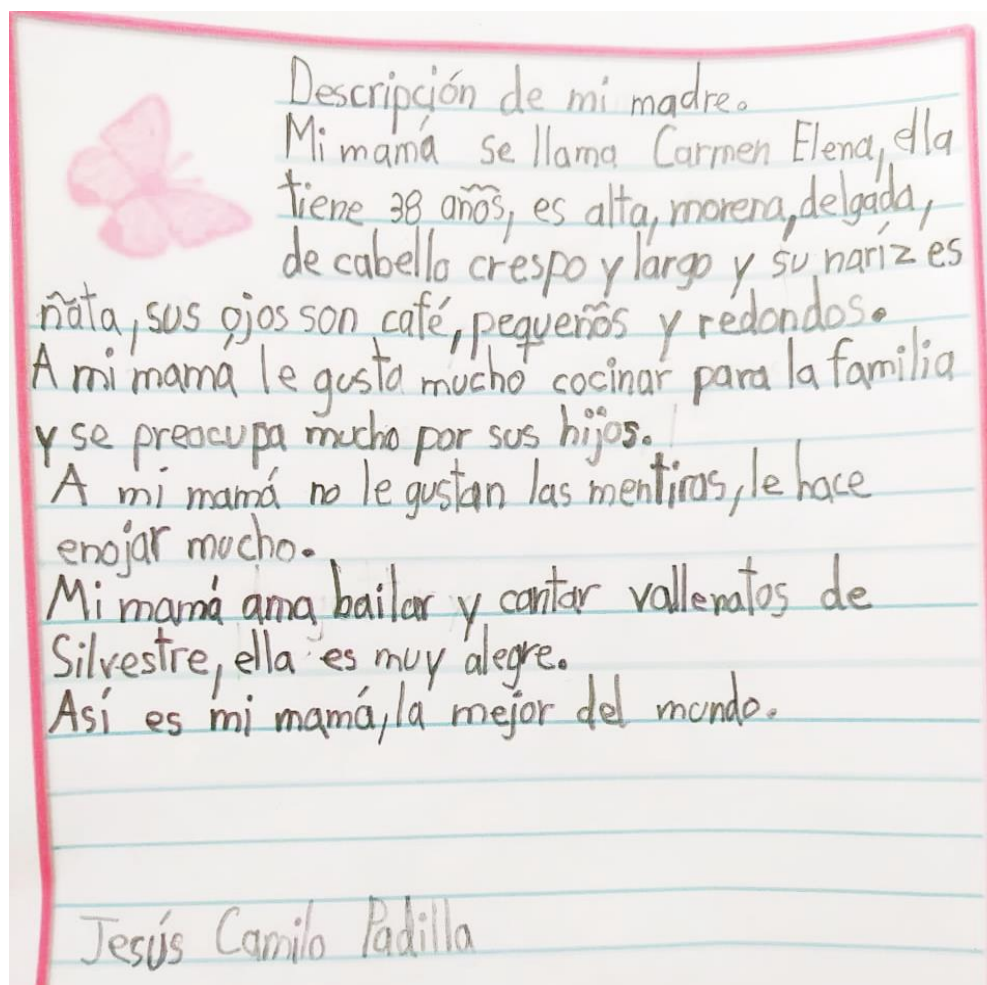 Descripción de mi madre.
Mi mamá se llama Carmen Elena, ella
tiene 38 años, es alta, morena, delgada,
de cabello crespo y largo y su nariz es
ñata, sus ojos son café, pequeños y redondos.
A mi mamá le gusta mucho cocinar para la familia
y se preocupa mucho por sus hijos.
A mi mamá no le gustan las mentiras, le hace
enojar mucho.
Mi mamá ama bailar y cantar vallenatos de
Silvestre, ella es muy alegre.
Así es mi mamá, la mejor del mundo.
Jesús Camilo Padilla